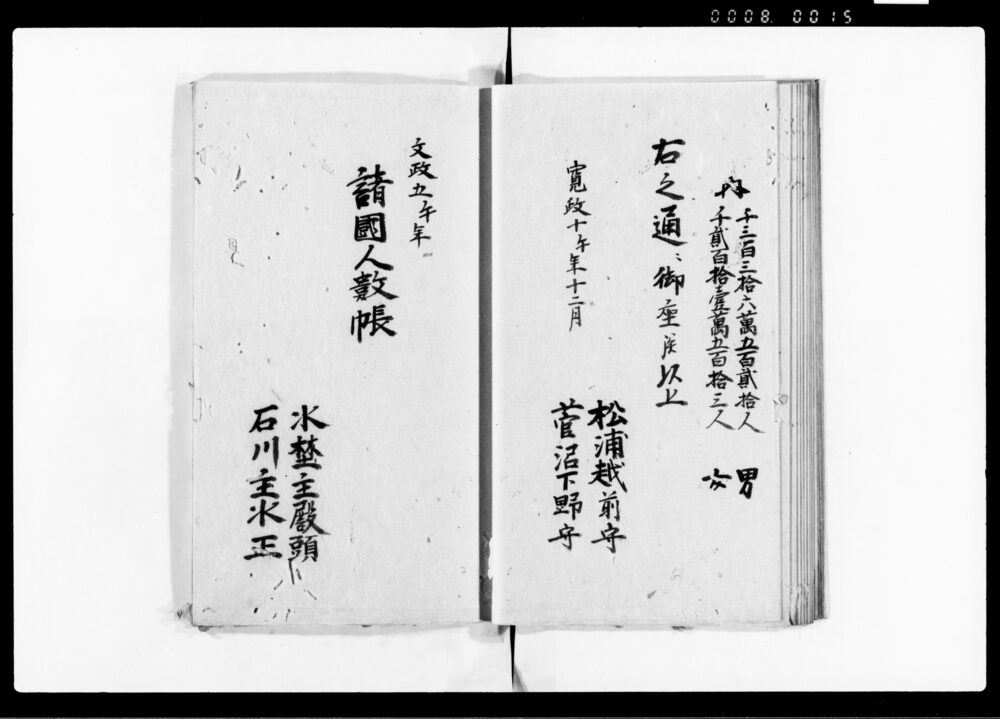 0008 0015
内
千三百三拾六萬五百貳拾人 男
千貳百拾壹萬五百拾三人 女
右之通ニ御座候以上
寛政十午年十二月
松浦越前守
菅沼下野守
文政五午年
諸國人數帳
水埜主殿頭
石川主水正